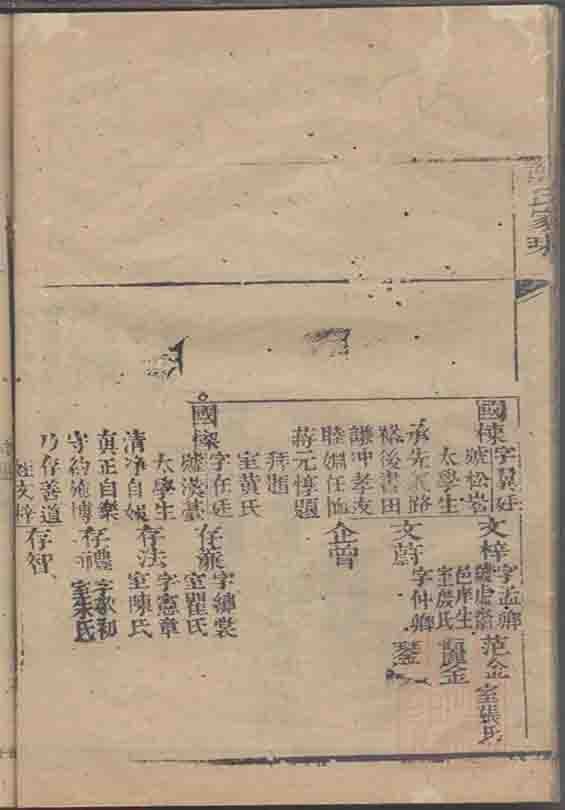 氏家
國棟字異廷
號松岩
太學生
承先義路
裕後書田
謙冲孝友
睦婣任恤
蔣元惇題
拜題
室黃氏
文梓字孟卿
號虛
邑庠生
室殷氏
范金室張氏
文蔚字仲卿
企曾
國樑字任廷
號漢臺
太學生
清淨自娛
真正自樂
守約施博
乃存善道
姪文梓
存廉字
室瞿氏
存法字憲章
室陳氏
存禮字敬初
室朱氏
存智